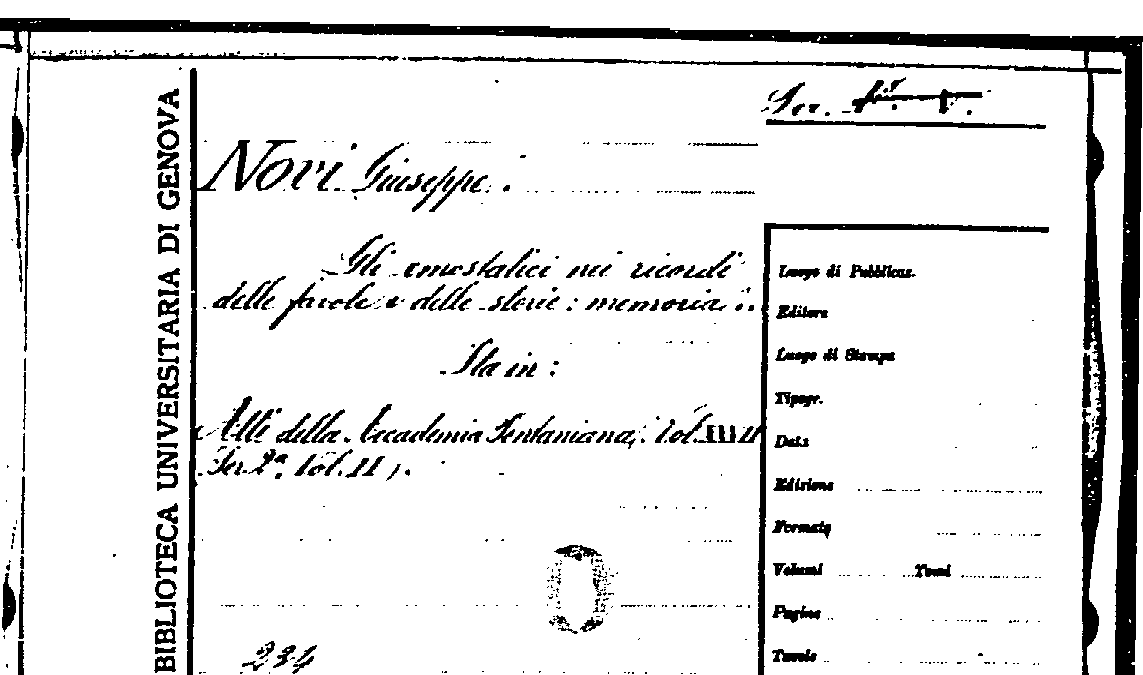 BIBLIOTECA UNIVERSITARIA DI GENOVA
Ser.
Novi Giuseppe.
Gli emostatici nei ricordi
delle favole e delle storie: memoria:.
Sta in:
Atti della Accademia Pontaniana, Vol.
Ser 2ª. Vol. II).
234
Luogo di Pubblicaz.
Editore
Luogo di Stampa
Tipogr.
Data
Edizione
Formato
Volumi Tomi
Pagine
Tavole